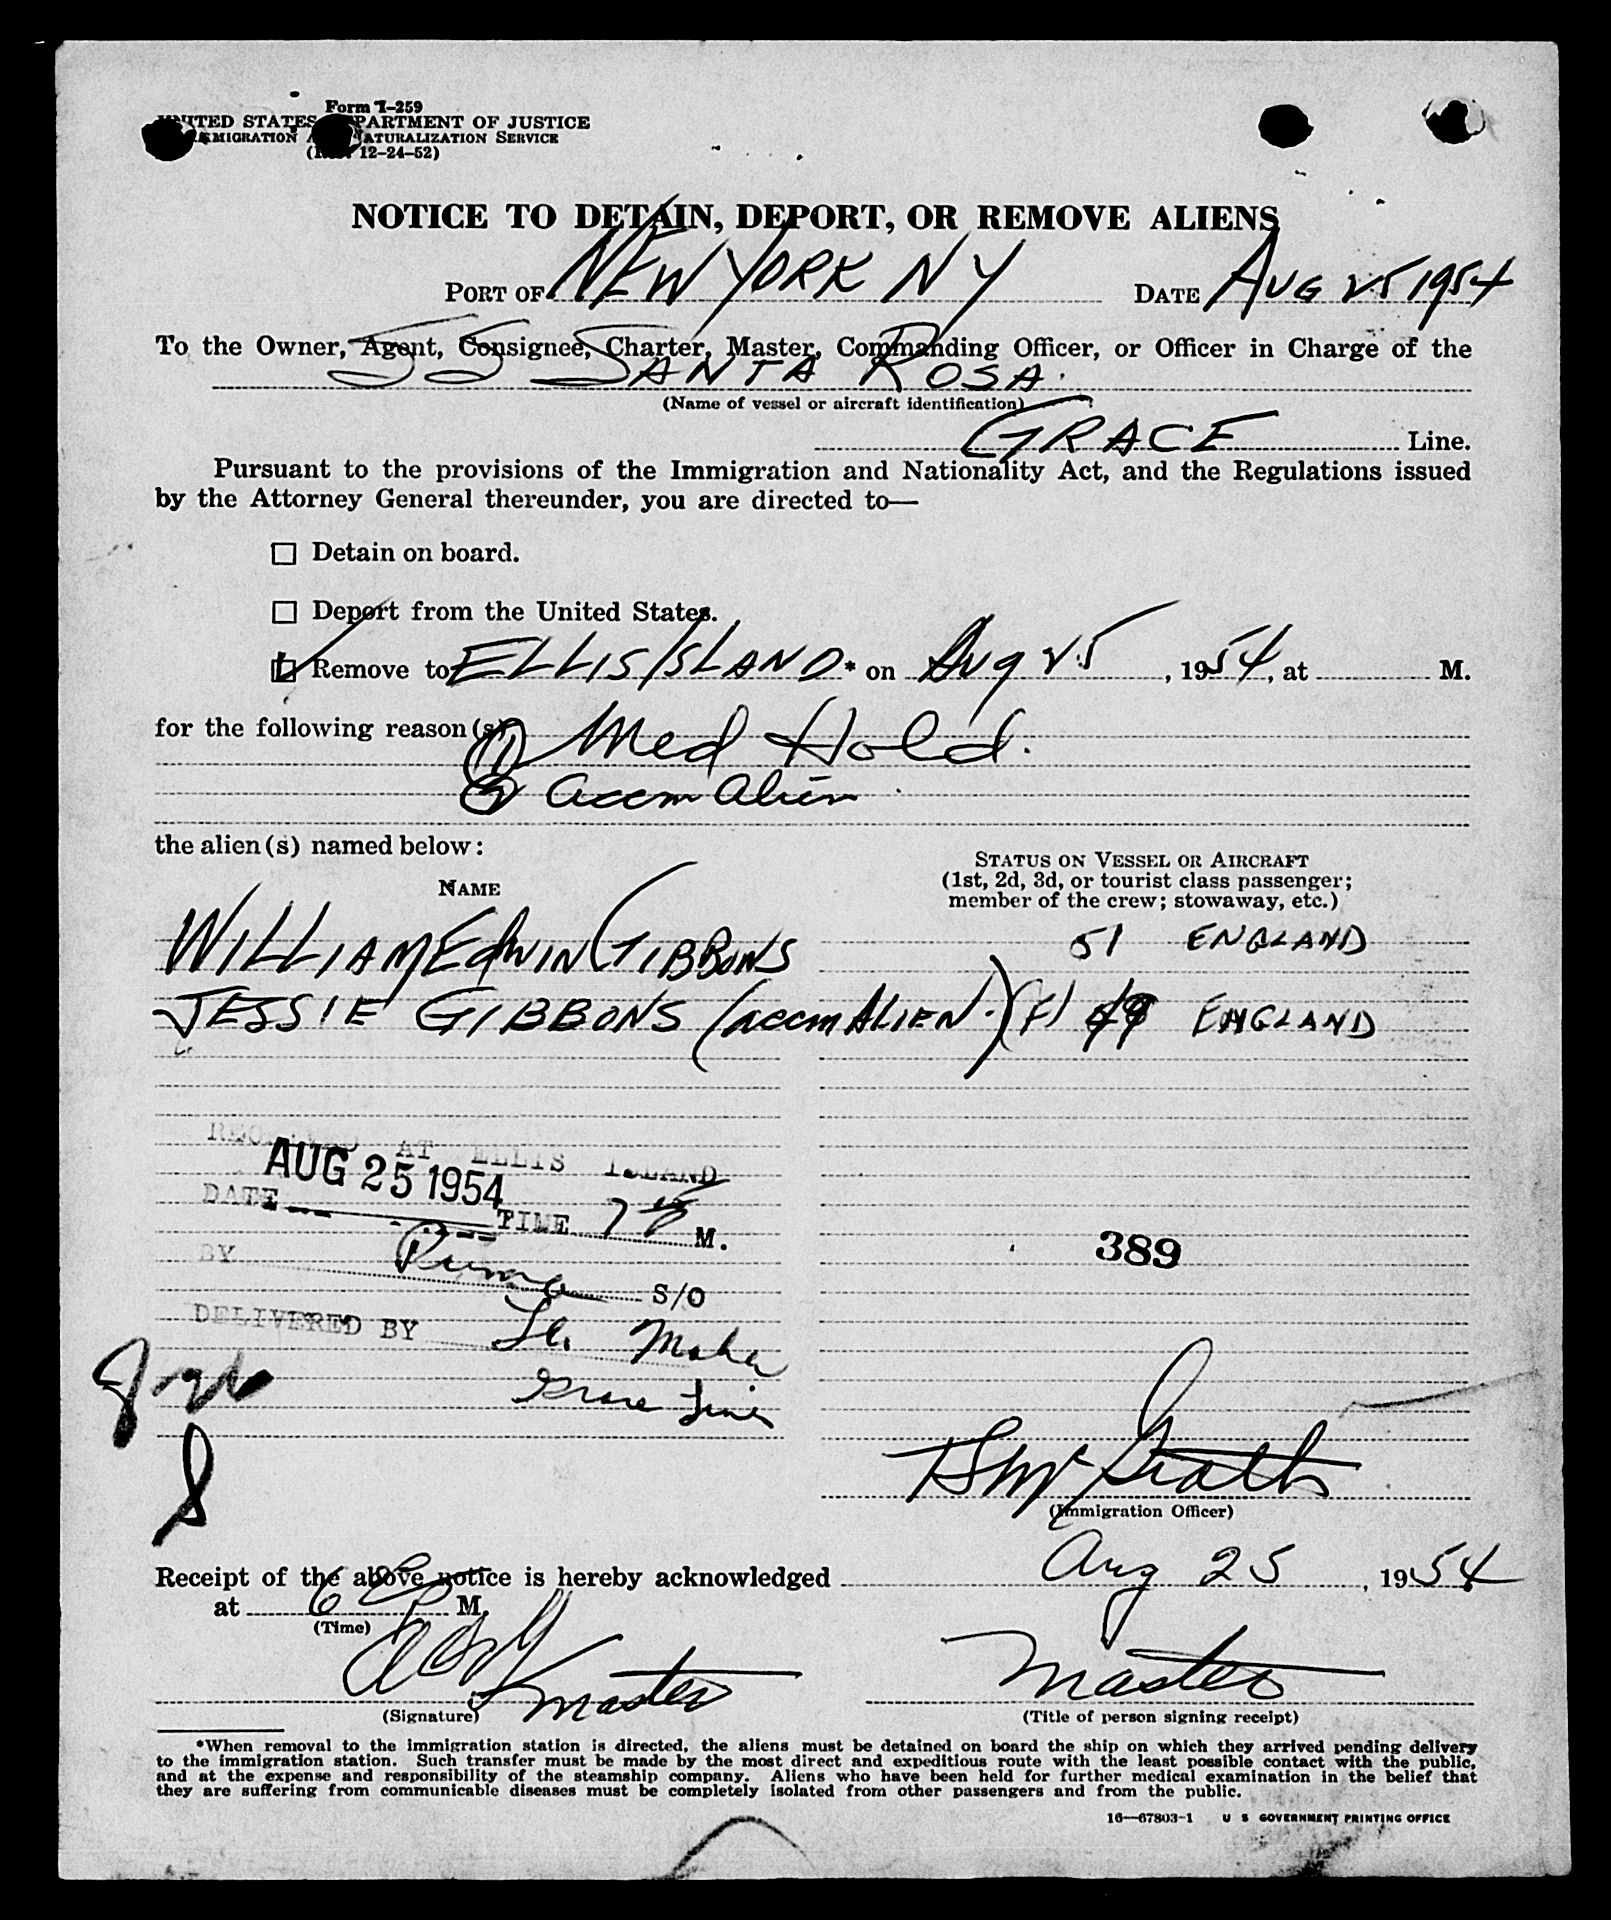 Form I-259
UNITED STATES DEPARTMENT OF JUSTICE
IMMIGRATION AND NATURALIZATION SERVICE
(Rev. 12-24-52)
NOTICE TO DETAIN, DEPORT, OR REMOVE ALIENS
PORT OF NEW YORK NY DATE AUG 25 1954
To the Owner, Agent, Consignee, Charter, Master, Commanding Officer, or Officer in Charge of the
SS SANTA ROSA.
(Name of vessel or aircraft identification)
GRACE Line.
Pursuant to the provisions of the Immigration and Nationality Act, and the Regulations issued
by the Attorney General thereunder, you are directed to—
☐ Detain on board.
☐ Deport from the United States.
☑ Remove to ELLIS ISLAND * on Aug 25, 1954, at M.
for the following reason(s)
(1) Med Hold.
(2) accm alien
the alien(s) named below:
NAME
STATUS ON VESSEL OR AIRCRAFT
(1st, 2d, 3d, or tourist class passenger;
member of the crew; stowaway, etc.)
WILLIAM EdWIN GIBBONS 51 ENGLAND
JESSIE GIBBONS (accm ALIEN.) (F) 49 ENGLAND
RECEIVED AT ELLIS ISLAND
AUG 25 1954
DATE TIME M.
BY S/O
389
DELIVERED BY Maher
Grace Line
(Immigration Officer)
Receipt of the above notice is hereby acknowledged Aug 25, 1954
at M.
(Time)
Master Master
(Signature) (Title of person signing receipt)
*When removal to the immigration station is directed, the aliens must be detained on board the ship on which they arrived pending delivery
to the immigration station. Such transfer must be made by the most direct and expeditious route with the least possible contact with the public,
and at the expense and responsibility of the steamship company. Aliens who have been held for further medical examination in the belief that
they are suffering from communicable diseases must be completely isolated from other passengers and from the public.
16—67803-1 U S GOVERNMENT PRINTING OFFICE